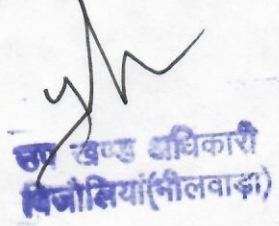 उप खण्ड अधिकारी
बिजोलियां(भीलवाड़ा)